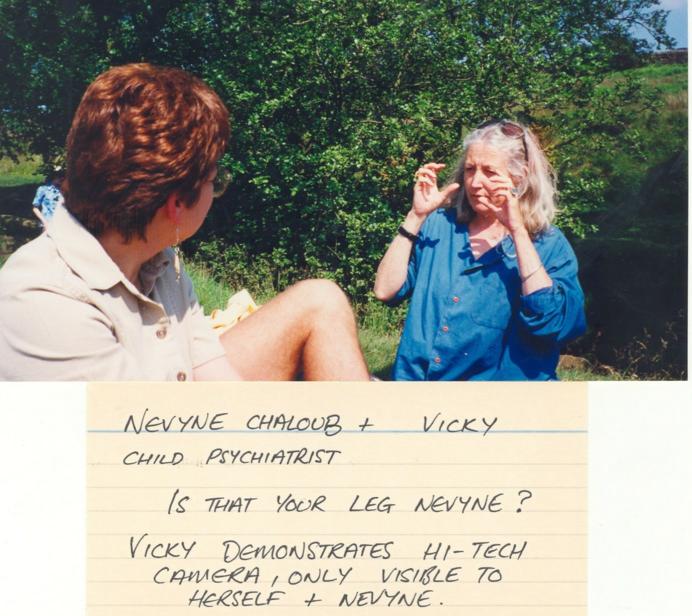 NEVYNE CHALOUB + VICKY
CHILD PSYCHIATRIST
IS THAT YOUR LEG NEVYNE?
VICKY DEMONSTRATES HI-TECH
CAMERA, ONLY VISIBLE TO
HERSELF + NEVYNE.